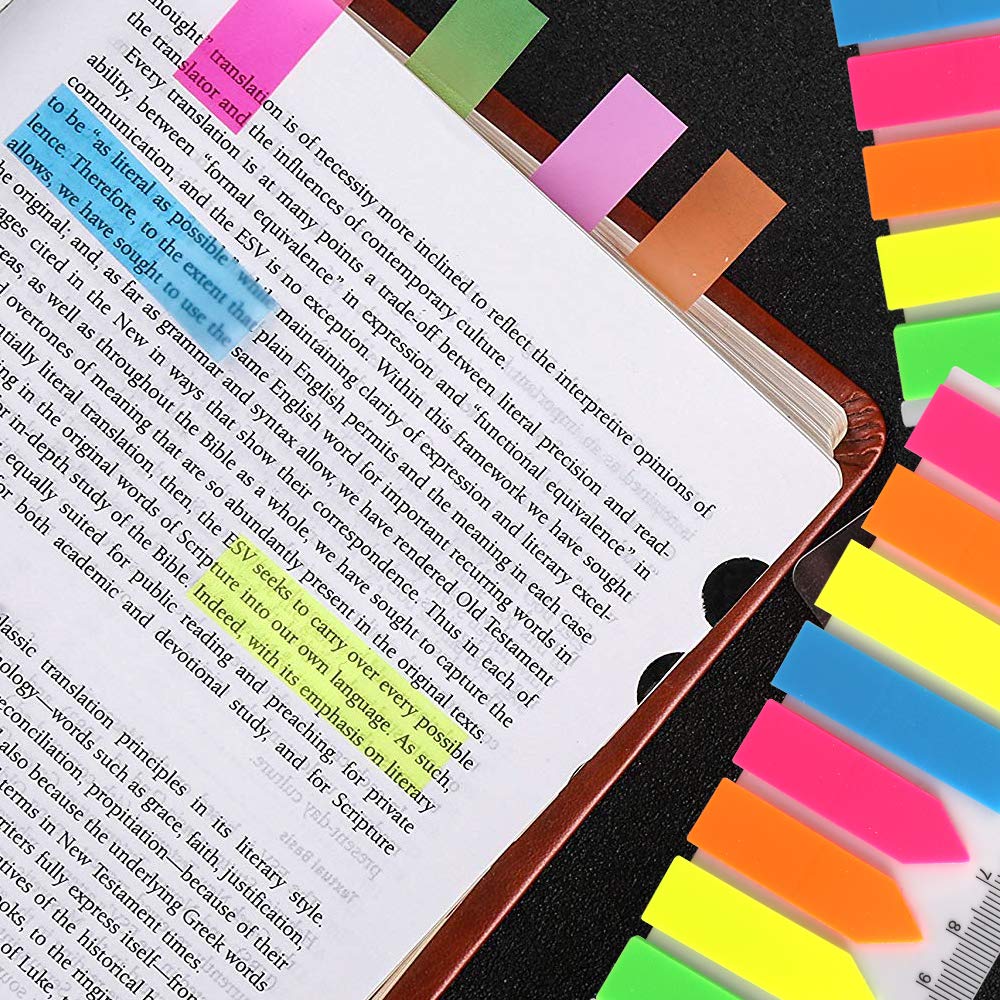 thought" translation is of necessity more inclined to reflect the interpretive opinions of
the translator and the influences of contemporary culture.
Every translation is at many points a trade-off between literal precision and read-
ability, between "formal equivalence" in expression and "functional equivalence" in
communication, and the ESV is no exception. Within this framework we have sought
to be "as literal as possible" while maintaining clarity of expression and literary excel-
lence. Therefore, to the extent that plain English permits and the meaning in each case
allows, we have sought to use the same English word for important recurring words in
he original; and, as far as grammar and syntax allow, we have rendered Old Testament
ages cited in the New in ways that show their correspondence. Thus in each of
reas, as well as throughout the Bible as a whole, we have sought to capture the
overtones of meaning that are so abundantly present in the original texts.
ntially literal translation, then, the ESV seeks to carry over every possible
ing in the original words of Scripture into our own language. As such,
or in-depth study of the Bible. Indeed, with its emphasis on literary
equally suited for public reading and preaching, for private
or both academic and devotional study, and for Scripture
lassic translation principles in its literary style
ology—words such as grace, faith, justification,
econciliation, propitiation—because of their
also because the underlying Greek words
terms in New Testament times.
riters fully express itself—from
tives of the historical
ooks, to the ringing
of Luke,
7
8
9